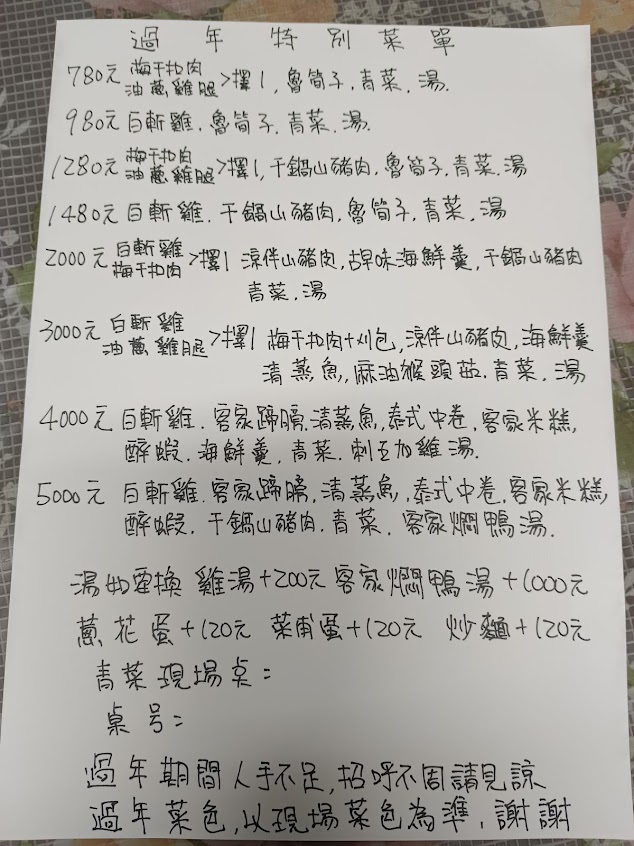 過年特別菜單
780元 梅干扣肉
油蔥雞腿 >擇1, 魯筍子, 青菜, 湯.
980元 白斬雞. 魯筍子. 青菜. 湯.
1280元 梅干扣肉
油蔥雞腿 >擇1, 干鍋山豬肉. 魯筍子. 青菜. 湯
1480元 白斬雞. 干鍋山豬肉, 魯筍子. 青菜, 湯
2000元 白斬雞
梅干扣肉 >擇1 涼伴山豬肉, 古早味海鮮羹, 干鍋山豬肉
青菜, 湯
3000元 白斬雞
油蔥雞腿 >擇1 梅干扣肉+刈包, 涼伴山豬皮, 海鮮羹
清蒸魚, 麻油猴頭菇. 青菜. 湯
4000元 白斬雞. 客家蹄膀, 清蒸魚, 泰式中卷, 客家米糕,
醉蝦. 海鮮羹. 青菜. 刺五加雞湯.
5000元 白斬雞. 客家蹄膀, 清蒸魚, 泰式中卷, 客家米糕,
醉蝦. 干鍋山豬肉. 青菜. 客家燜鴨湯.
湯如需換 雞湯+200元 客家燜鴨湯+1000元
蔥花蛋+120元 菜甫蛋+120元 炒麵+120元
青菜現場桌=
桌号=
過年期間人手不足, 招呼不周請見諒
過年菜色, 以現場菜色為準, 謝謝